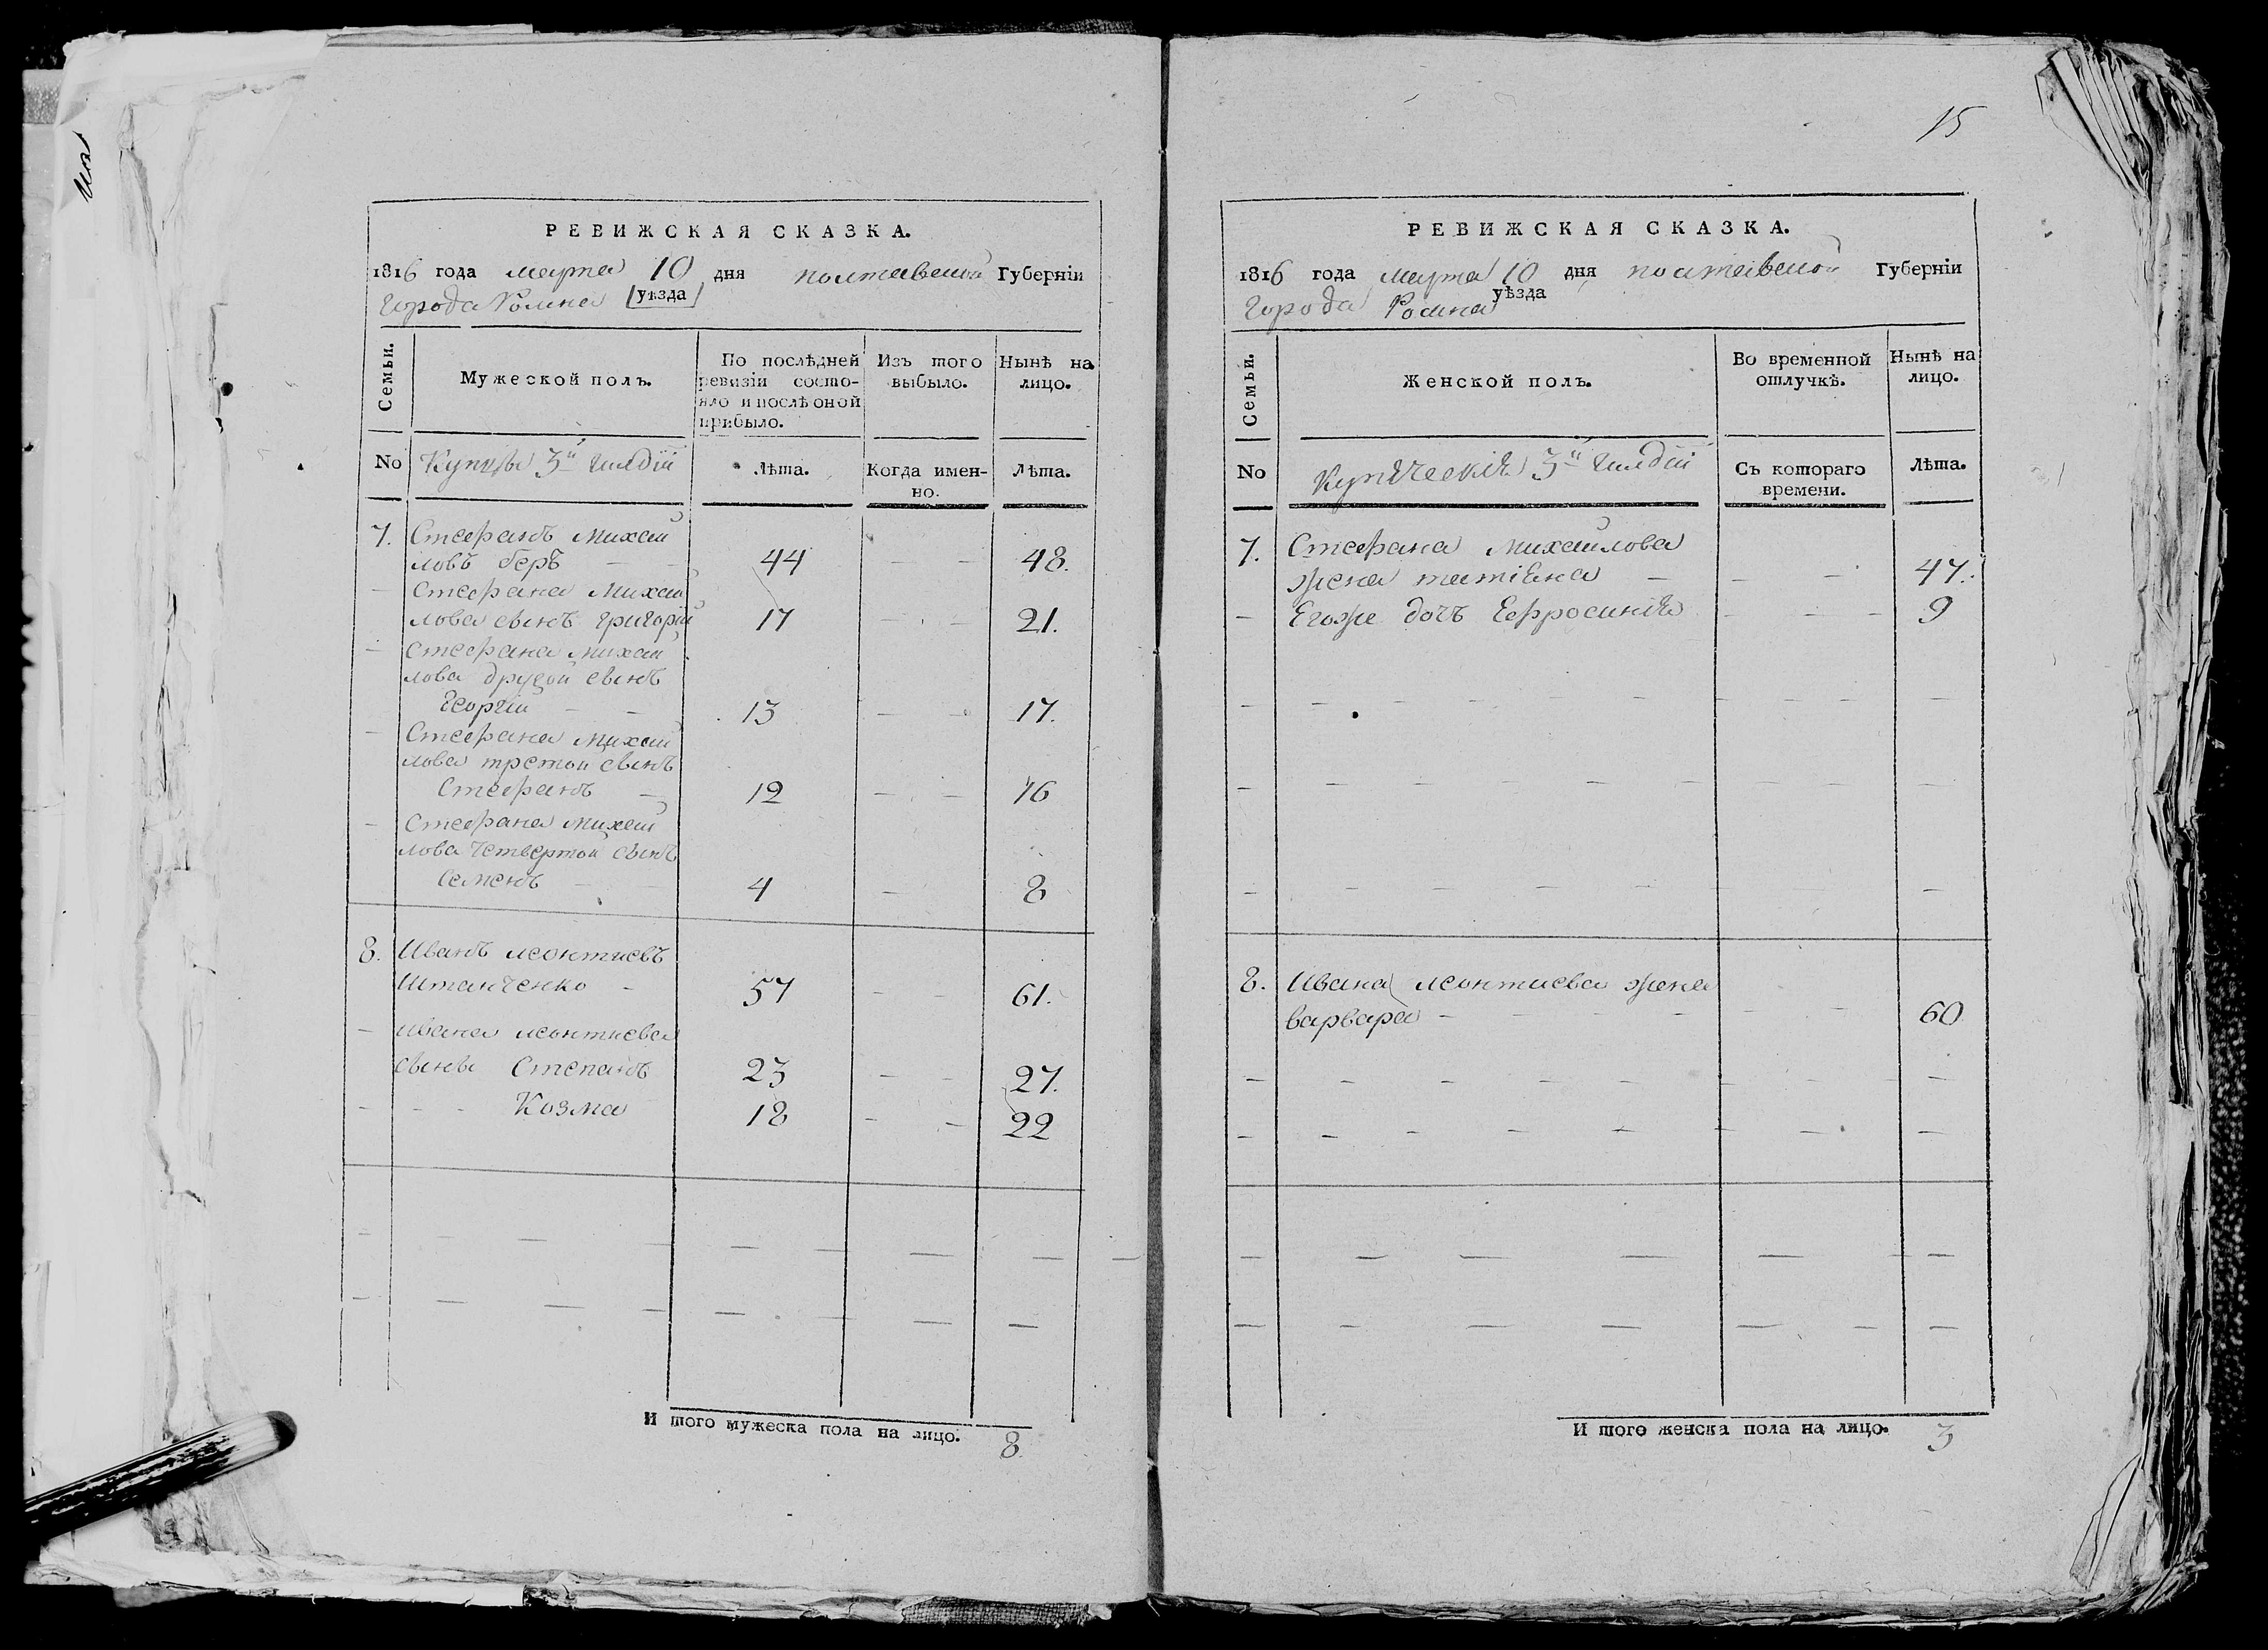 РЕВИЖСКАЯ СКАЗКА.
1816 года марта 10 дня полтавской Губернїи
города Ромна уѣзда
Семьи.
Мужеской полъ.
По послѣдней ревизїи состояло и послѣ оной прибыло.
Изъ того выбыло.
Нынѣ на лицо.
No
Купцы 3й гилдїи
Лѣта.
Когда именно.
Лѣта.
7. Стефанъ михай
ловъ беръ 44 48.
Стефана михай
лова сынъ григорїй 17 21.
Стефана михай
лова другой сынъ
Георгїй 13 17.
Стефана михай
лова третой сынъ
Стефанъ 12 16
Стефана михай
лова четвертой сынъ
Семенъ 4 8
8. Иванъ леонтиевъ
Штанченко 57 61.
ивана леонтиева
сыны Степанъ 23 27.
Козма 18 22
И того мужеска пола на лицо. 8
15
РЕВИЖСКАЯ СКАЗКА.
1816 года марта 10 дня полтавской Губернїи
города Ромна уѣзда
Семьи.
Женской полъ.
Во временной отлучкѣ.
Нынѣ на лицо.
No
Купѣческїя 3й гилдїи
Съ котораго времени.
Лѣта.
7. Стефана михайлова
жена татїяна 47.
Егоже дочъ Ефросинїя 9
8. Ивана леонтиева жена
варвара 60
И того женска пола на лицо. 3